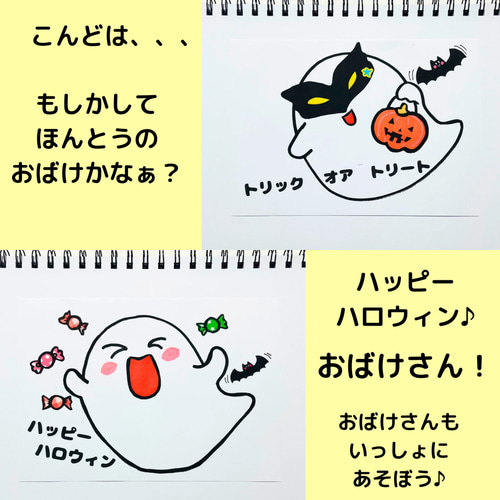 こんどは、、、
もしかして
ほんとうの
おばけかなぁ？
トリック オア トリート
ハッピー
ハロウィン
ハッピー
ハロウィン♪
おばけさん！
おばけさんも
いっしょに
あそぼう♪